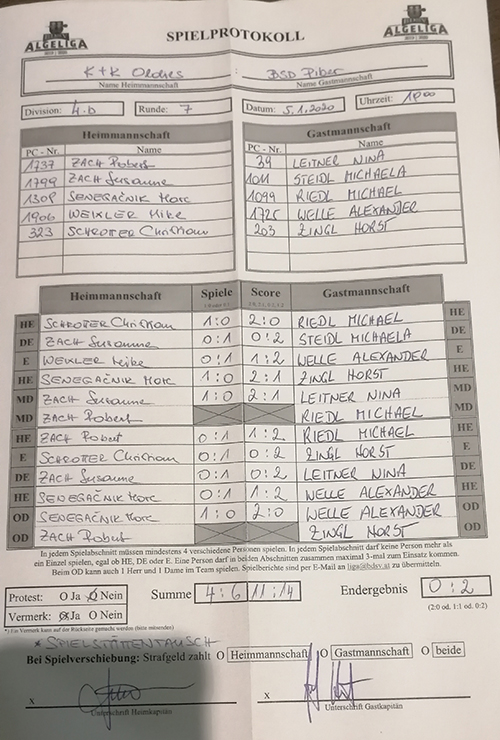 ALGELIGA
SPIELPROTOKOLL
ALGELIGA
K+K Oldies : BSD Piber
Name Heimmannschaft Name Gastmannschaft
Division: 4.b Runde: 7 Datum: 5.1.2020 Uhrzeit: 18⁰⁰
Heimmannschaft Gastmannschaft
PC - Nr. Name PC - Nr. Name
1737 ZACH Robert 39 LEITNER NINA
1799 ZACH Susanne 1011 STEIDL MICHAELA
1309 SENEGAČNIK Marc 1099 RIEDL MICHAEL
1906 WEIXLER Mike 1725 WELLE ALEXANDER
323 SCHROTER Christiam 203 ZINGL HORST
Heimmannschaft Spiele Score Gastmannschaft
HE SCHROTER Christiam 1:0 2:0 RIEDL MICHAEL HE
DE ZACH Susanne 0:1 0:2 STEIDL MICHAELA DE
E WEIXLER Meike 0:1 1:2 WELLE ALEXANDER E
HE SENEGAČNIK Marc 1:0 2:1 ZINGL HORST HE
MD ZACH Susanne 1:0 2:1 LEITNER NINA MD
MD ZACH Robert RIEDL MICHAEL MD
HE ZACH Robert 0:1 1:2 RIEDL MICHAEL HE
E SCHROTER Christiam 0:1 0:2 ZINGL HORST E
DE ZACH Susanne 0:1 0:2 LEITNER NINA DE
HE SENEGAČNIK Marc 0:1 1:2 WELLE ALEXANDER HE
OD SENEGAČNIK Marc 1:0 2:0 WELLE ALEXANDER OD
OD ZACH Robert ZINGL HORST OD
In jedem Spielabschnitt müssen mindestens 4 verschiedene Personen spielen. In jedem Spielabschnitt darf keine Person mehr als
ein Einzel spielen, egal ob HE, DE oder E. Eine Person darf in beiden Abschnitten zusammen maximal 3-mal zum Einsatz kommen.
Beim OD kann auch 1 Herr und 1 Dame im Team spielen. Spielberichte sind per E-Mail an liga@bdsv.at zu übermitteln.
Protest: O Ja O Nein Summe 4:6 11:14 Endergebnis 0:2
Vermerk: O Ja O Nein (2:0 od. 1:1 od. 0:2)
*) Ein Vermerk kann auf der Rückseite gemacht werden (bitte mitsenden)
* SPIELSTÄTTENTAUSCH
Bei Spielverschiebung: Strafgeld zahlt O Heimmannschaft O Gastmannschaft O beide
x x
Unterschrift Heimkapitän Unterschrift Gastkapitän